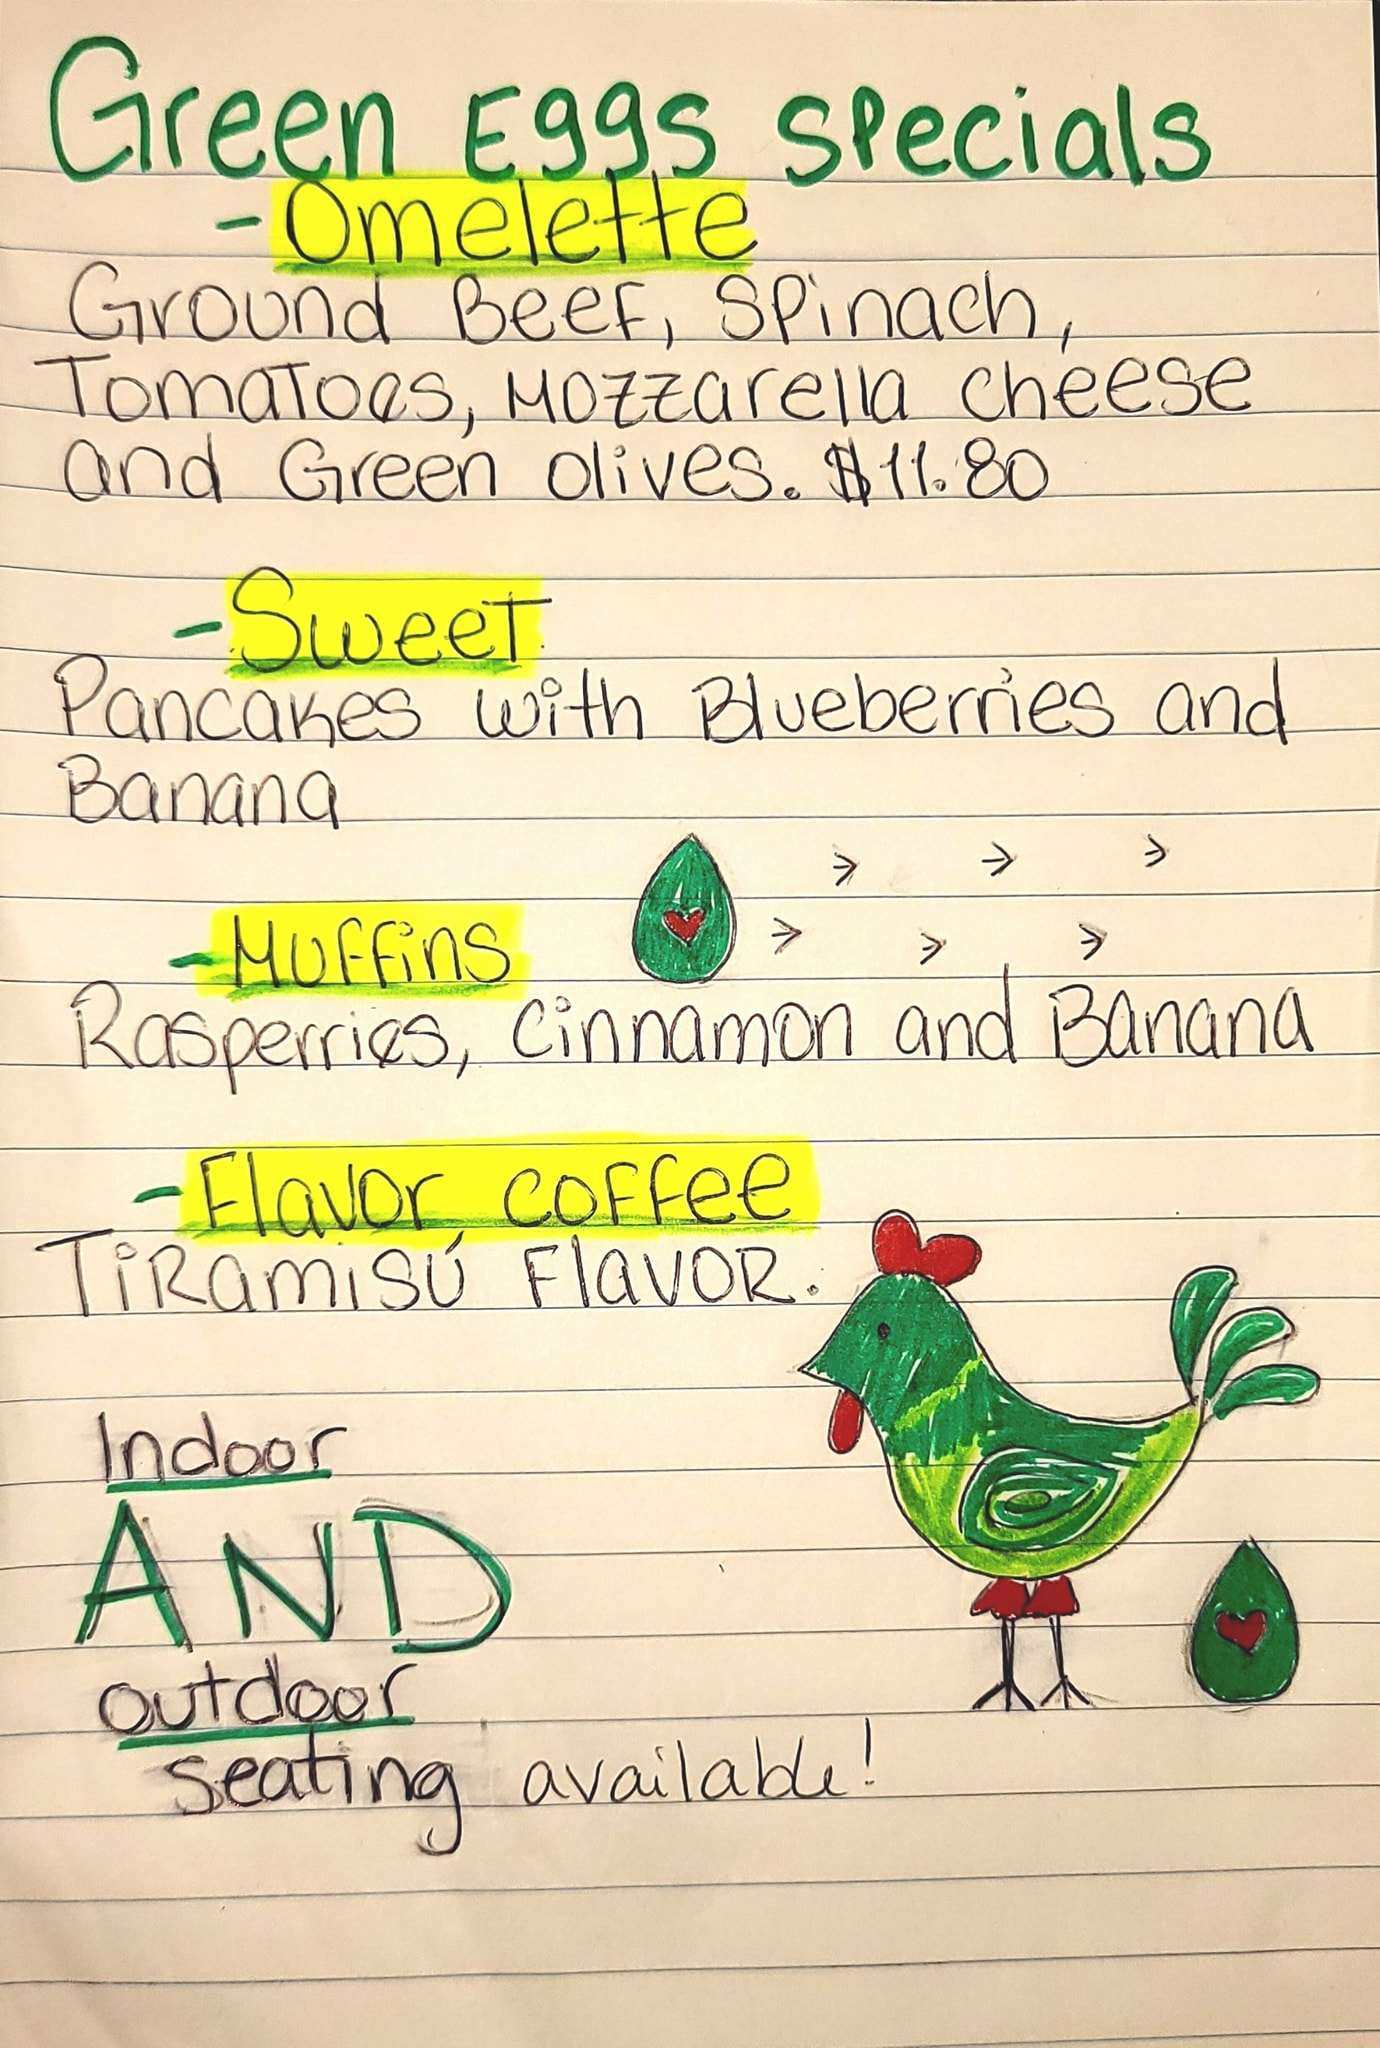 Green Eggs Specials
- Omelette
Ground Beef, Spinach,
Tomatoes, Mozzarella cheese
and Green olives. $11.80
- Sweet
Pancakes with Blueberries and
Banana
- Muffins
Rasperries, Cinnamon and Banana
- Flavor coffee
Tiramisú Flavor.
Indoor
AND
outdoor
seating available!